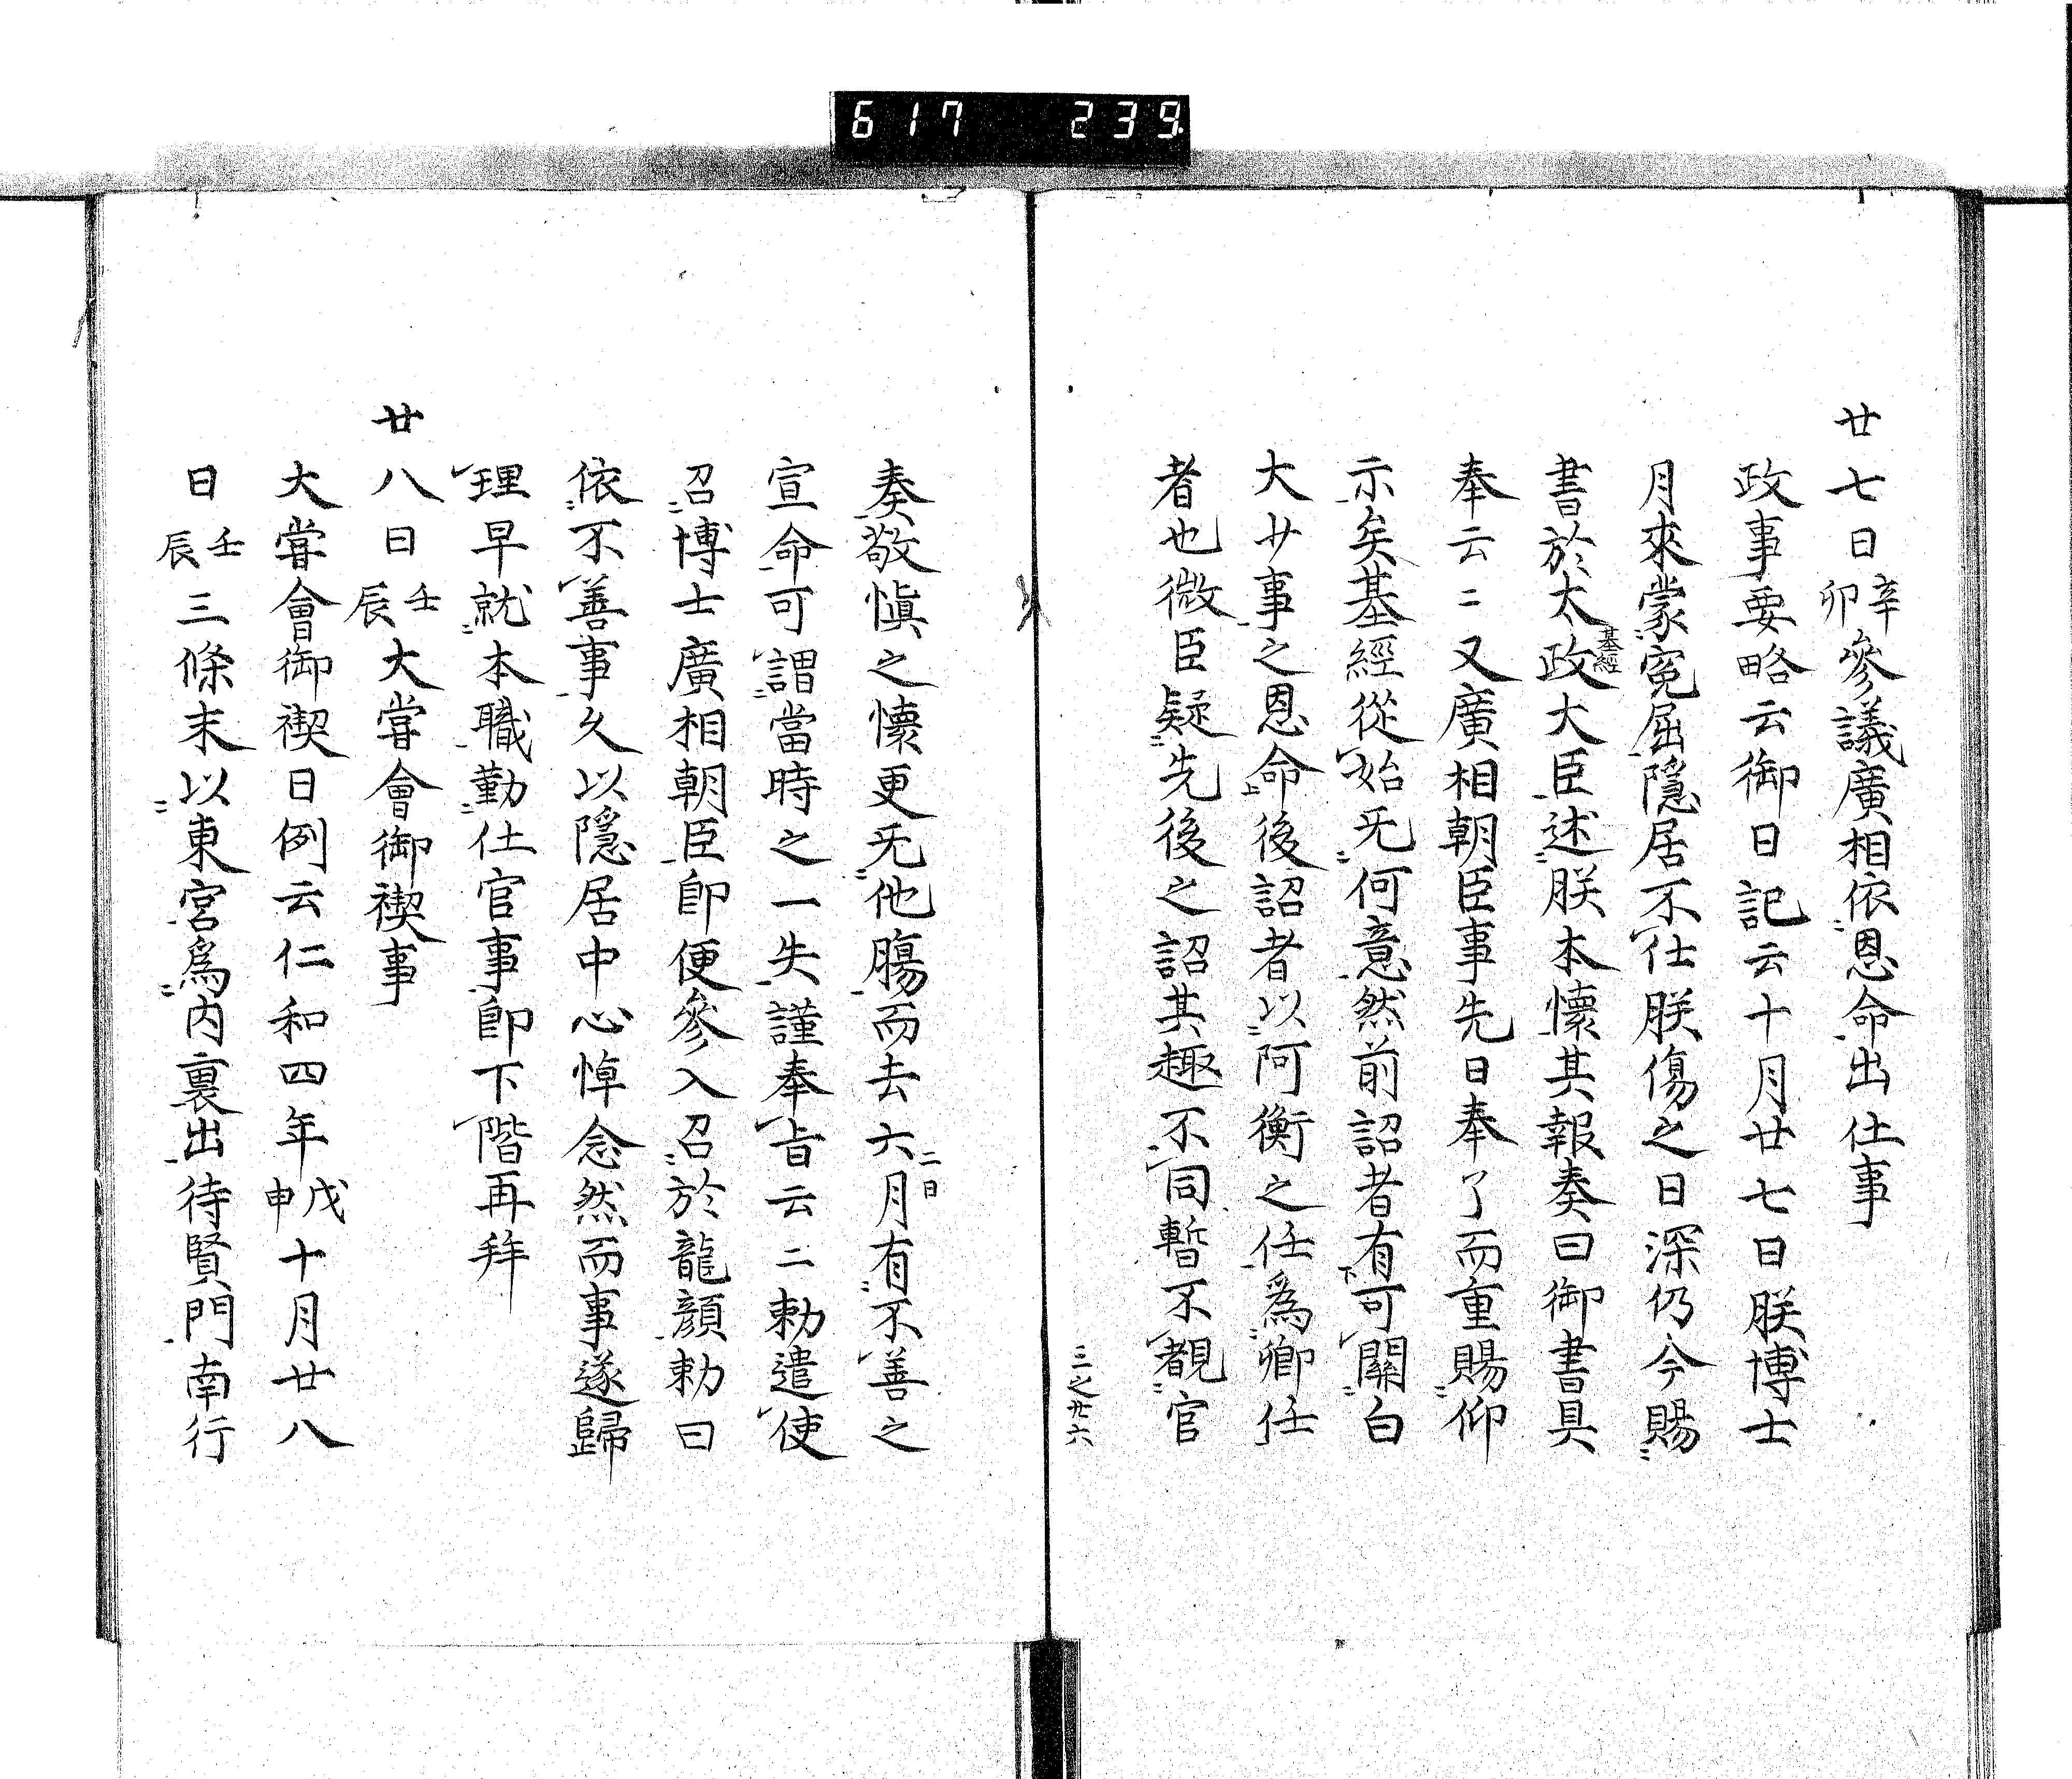 617 239
廿七日辛卯參議廣相依恩命出仕事
政事要略云御日記云十月廿七日朕博士
月來蒙寃屈隱居不仕朕傷之日深仍今賜
書於太政大臣基經述朕本懷其報奏曰御書具
奉云〻又廣相朝臣事先日奉了而重賜仰
示矣基經從始旡何意然前詔者有可關白
大廾事之恩命後詔者以阿衡之任爲卿任
者也微臣疑先後之詔其趣不同暫不覩官
三之卅六
奏敬愼之懷更旡他膓而去六月二日有不善之
宣命可謂當時之一失謹奉旨云〻勅遣使
召博士廣相朝臣卽便參入召於龍顔勅曰
依不善事久以隱居中心悼念然而事遂歸
理早就本職勤仕官事卽下階再拜
廿八日壬辰大甞會御禊事
大甞會御禊日例云仁和四年戊申十月廿八
日壬辰三條末以東宮爲内裏出待賢門南行